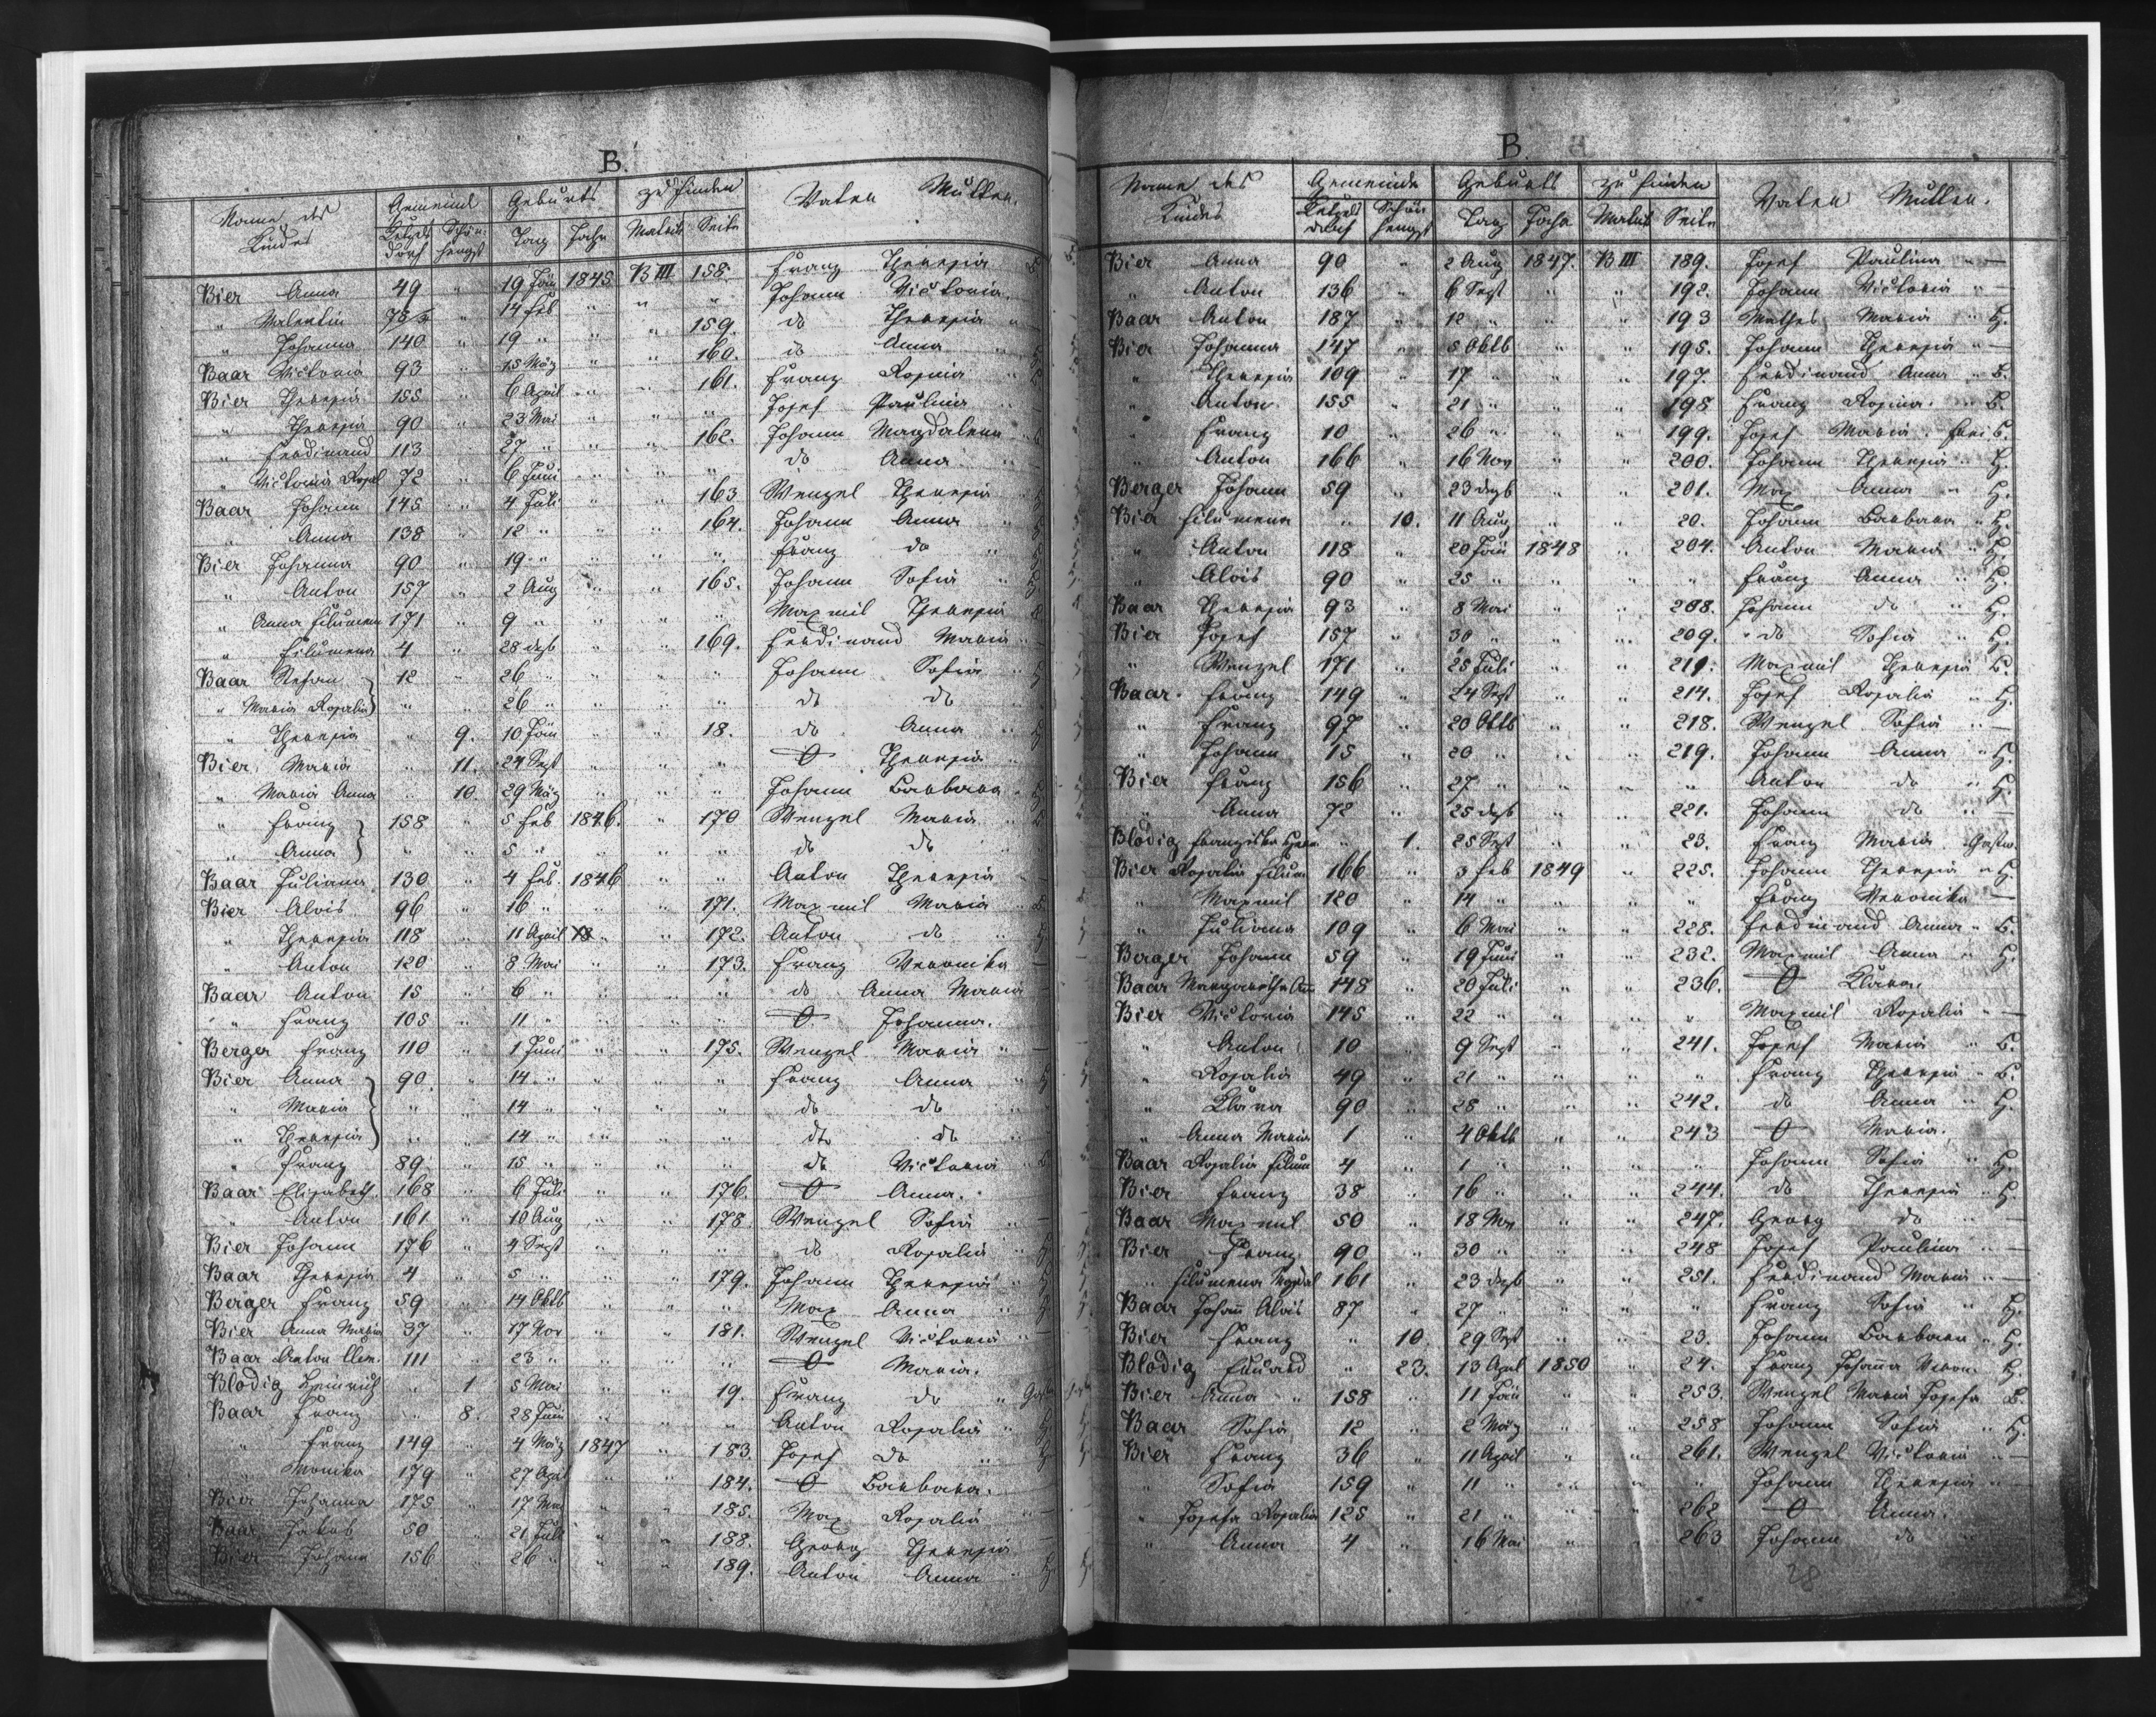 B.
Name des Kindes Gemeinde Geburts zu finden Vater Mutter.
Ketzelsdorf Schönhengst Tag Jahr Matrik Seite
Bier Anna 49 " 19 Jän 1845 B III 158. Franz Theresia
" Valentin 14 Feb " " " Johann Victoria.
" Johanna 140 " 19 " " " 159. do Theresia "
Baar Victoria 93 " 15 Mäz " " 160. do Anna
Bier Theresia 155 " 6 April " " 161. Franz Rosina
" Theresia 90 " 23 Mai " " " Josef Paulina
" Ferdinand 113 " 27 " " " 162. Johann Magdalena
" Victoria Rosal 72 " 6 Juni " " " do Anna
Baar Johann 145 " 4 Juli " " 163 Wenzel Theresia
" Anna 138 " 12 " " " 164. Johann Anna
Bier Johanna 90 " 19 " " " " Franz do
" Anton 157 " 2 Aug " " 165. Johann Sofia
" Anna Filumena 171 " 9 " " " " Maxmil Theresia
" Filumena 4 " 28 dezb " " 169. Ferdinand Maria
Baar Stefan 12 " 26 " " " " Johann Sofia
" Maria Rosalia " " 26 " " " " do do
" Theresia " 9. 10 Jän " " 18. do Anna
Bier Maria " 11. 24 Sept " " " O Theresia
" Maria Anna " 10. 29 Mäz " " " Johann Barbara
" Franz 158 " 5 Feb 1846. " 170 Wenzel Maria
" Anna " " 5 " " " " do do
Baar Juliana 130 " 4 Feb. 1846 " " Anton Theresia
Bier Alois 96 " 16 " " " 171. Maxmil Maria
" Theresia 118 " 11 April " " 172. Anton do
" Anton 120 " 8 Mai " " 173. Franz Veronika
Baar Anton 15 " 6 " " " " do Anna Maria
" Franz 105 " 11 " " " " O Johanna.
Berger Franz 110 " 1 Juni " " 175. Wenzel Maria
Bier Anna 90. " 14 " " " " Franz Anna
" Maria " " 14 " " " " do do
" Theresia " " 14 " " " " do do
" Franz 89 " 15 " " " " do Victoria
Baar Elisabeth. 168 " 6 Juli " " 176. O Anna.
" Anton 161 " 10 Aug " " 178. Wenzel Sofia
Bier Johann 176 " 4 Sept " " " do Rosalia
Baar Theresia 4 " 5 " " " 179. Johann Theresia
Berger Franz 59 " 14 Oktb " " " Max Anna
Bier Anna Maria 37 " 17 Nov " " 181. Wenzel Victoria
Baar Anton Clem. 111 " 23 " " " " O Maria.
Blodig Heinrich " 1 5 Mai " " 19. Franz do
Baar Franz " 8. 28 Juni " " " Anton Rosalia
" Franz 149 " 4 Mäz 1847 " 183. Josef do
" Monika 179 " 27 April " " 184. O Barbara.
Bier Johanna 175 " 17 Mai " " 185. Max Rosalia
Baar Jakob 50 " 21 Juli " " 188. Georg Theresia
Bier Johann 156 " 26 " " " 189. Anton Anna
B.
Name des Kindes Gemeinde Geburts zu finden Vater Mutter.
Ketzelsdorf Schönhengst Tag Jahr Matrik Seite
Bier Anna 90 " 2 Aug 1847. B III 189. Josef Paulina " —
" Anton 136 " 6 Sept " " 192. Johann Victoria " —
Baar Anton 187 " 12 " " " 193 Mathes Maria " H.
Bier Johanna 147 " 5 Oktb " " 195. Johann Theresia " —
" Theresia 109 " 17 " " " 197. Ferdinand Anna " B.
" Anton 155 " 21 " " " 198 Franz Rosina " B.
" Franz 10 " 26 " " " 199. Josef Maria.
" Anton 166 " 16 Nov " " 200. Johann Theresia " H.
Berger Johann 59 " 23 dezb " " 201. Max Anna " H.
Bier Filumena " 10. 11 Aug " " 20. Johann Barbara " H.
" Anton 118 " 20 Jän 1848 " 204. Anton Maria " H.
" Alois 90 " 25 " " " " Franz Anna " H.
Baar Theresia 93 " 8 Mai " " 208. Johann do " H.
Bier Josef 157 " 30 " " " 209. do Sofia " H.
" Wenzel 171 " 25 Juli " " 211. Maxmil Theresia " B.
Baar Franz 149 " 24 Sept " " 214. Josef Rosalia " H.
" Franz 97 " 20 Oktb " " 218. Wenzel Sofia " —
" Johann 15 " 20 " " " 219. Johann Anna " H.
Bier Franz 156 " 27 " " " " Anton do " H.
" Anna 72 " 25 dezb " " 221. Johann do " —
Blodig Franziska " 1. 25 Sept " " 23. Franz Maria.
Bier Rosalia Filum 166 " 3 Feb 1849 " 225. Johann Theresia " H.
" Maxmil 120 " 14 " " " " Franz Veronika —
" Juliana 109 " 6 Mai " " 228. Ferdinand Anna " B.
Berger Johann 59 " 19 Juni " " 232. Maxmil Anna " H.
Baar Margaretha 148 " 20 Juli " " 236. O Klara.
Bier Victoria 145 " 22 " " " " Maxmil Rosalia " —
" Anton 10 " 9 Sept " " 241. Josef Maria " B.
" Rosalia 49 " 21 " " " " Franz Theresia " B.
" Klara 90 " 28 " " " 242. do Anna " H.
" Anna Maria 1 " 4 Oktb " " 243 O Maria.
Baar Rosalia Filum 4 " 1 " " " " Johann Sofia " H.
Bier Franz 38 " 16 " " " 244. do Theresia " H
Baar Maxmil 50 " 18 Nov " " 247. Georg do " —
Bier Franz 90 " 30 " " " 248 Josef Paulina " —
" Filumena Magdal 161 " 23 dezb " " 251. Ferdinand Maria " —
Baar Johann Alois 87 " 27 " " " " Franz Sofia " H.
Bier Franz " 10. 29 Sept " " 23. Johann Barbara " H.
Blodig Eduard " 23. 13 April 1850 " 24. Franz Johanna Veron. H.
Bier Anna " 158 " 11 Jän " " 253. Wenzel Maria Josefa B.
Baar Sofia 12 " 2 März " " 258 Johann Sofia " H.
Bier Franz 36 " 11 April " " 261. Wenzel Victoria " —
" Sofia 159 " 11 " " " " Johann Theresia " —
" Josefa Rosalia 125 " 21 " " " 262 O Anna.
" Anna 4 " 16 Mai " " 263 Johann do "
28